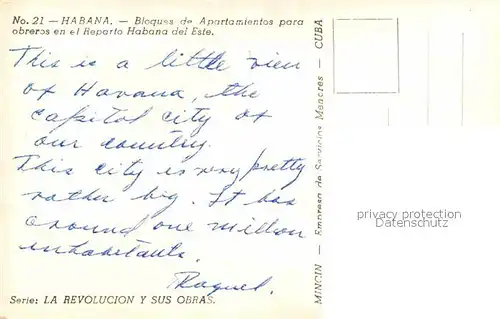 No. 21 — HABANA. — Bloques de Apartamientos para
obreros en el Reparto Habana del Este.
This is a little view
of Havana, the
capital city of
our country.
This city is very pretty
rather big. It has
around one million
inhabitants.
Raquel.
Serie: LA REVOLUCION Y SUS OBRAS.
MINCIN — Empresa de Servicios Menores — CUBA
privacy protection
Datenschutz